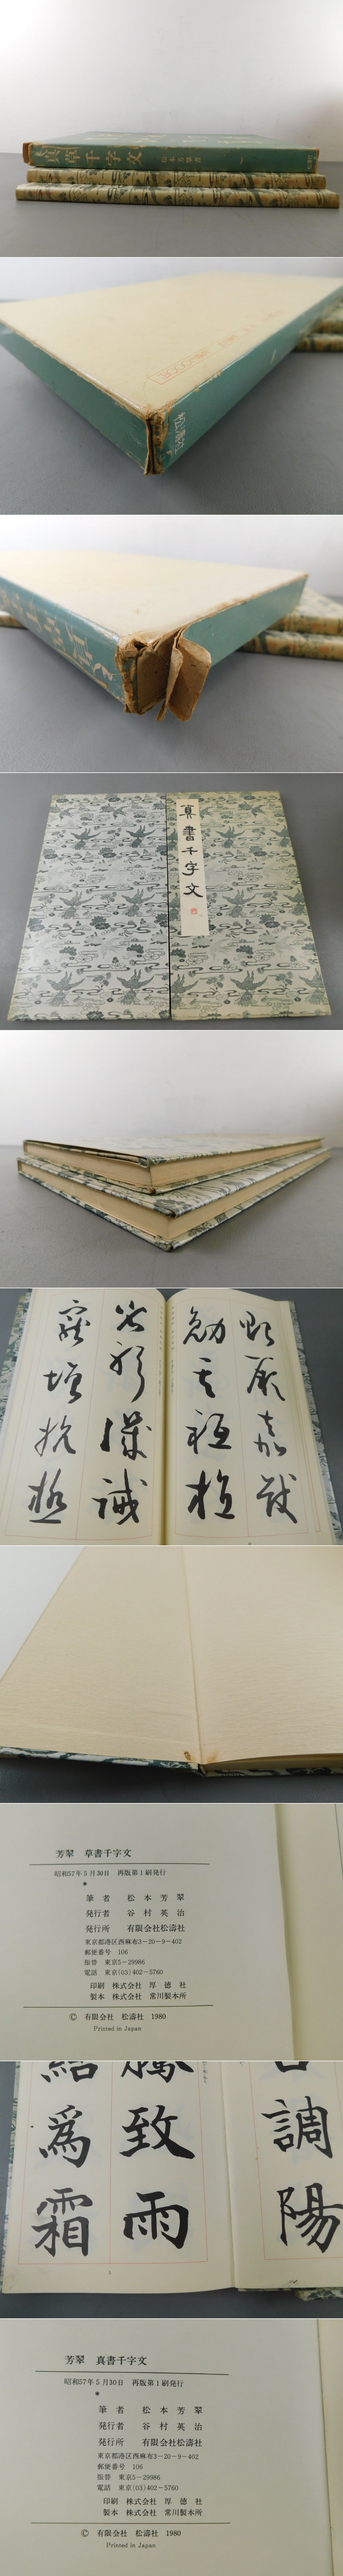 千字文
松本芳翠書
松濤社
真書千字文
勉其祗植
貽厥嘉猷
省躬譏誡
寵増抗極
芳翠　草書千字文
昭和57年5月30日　再版第1刷発行
＊
筆者　松本芳翠
発行者　谷村英治
発行所　有限会社松濤社
東京都港区西麻布3-20-9-402
郵便番号　106
振替　東京5-29986
電話　東京(03)402-5760
印刷　株式会社　厚徳社
製本　株式会社　常川製本所
©　有限会社　松濤社　1980
Printed in Japan
調陽
騰致雨
結為霜
芳翠　真書千字文
昭和57年5月30日　再版第1刷発行
＊
筆者　松本芳翠
発行者　谷村英治
発行所　有限会社松濤社
東京都港区西麻布3-20-9-402
郵便番号　106
振替　東京5-29986
電話　東京(03)402-5760
印刷　株式会社　厚徳社
製本　株式会社　常川製本所
©　有限会社　松濤社　1980
Printed in Japan